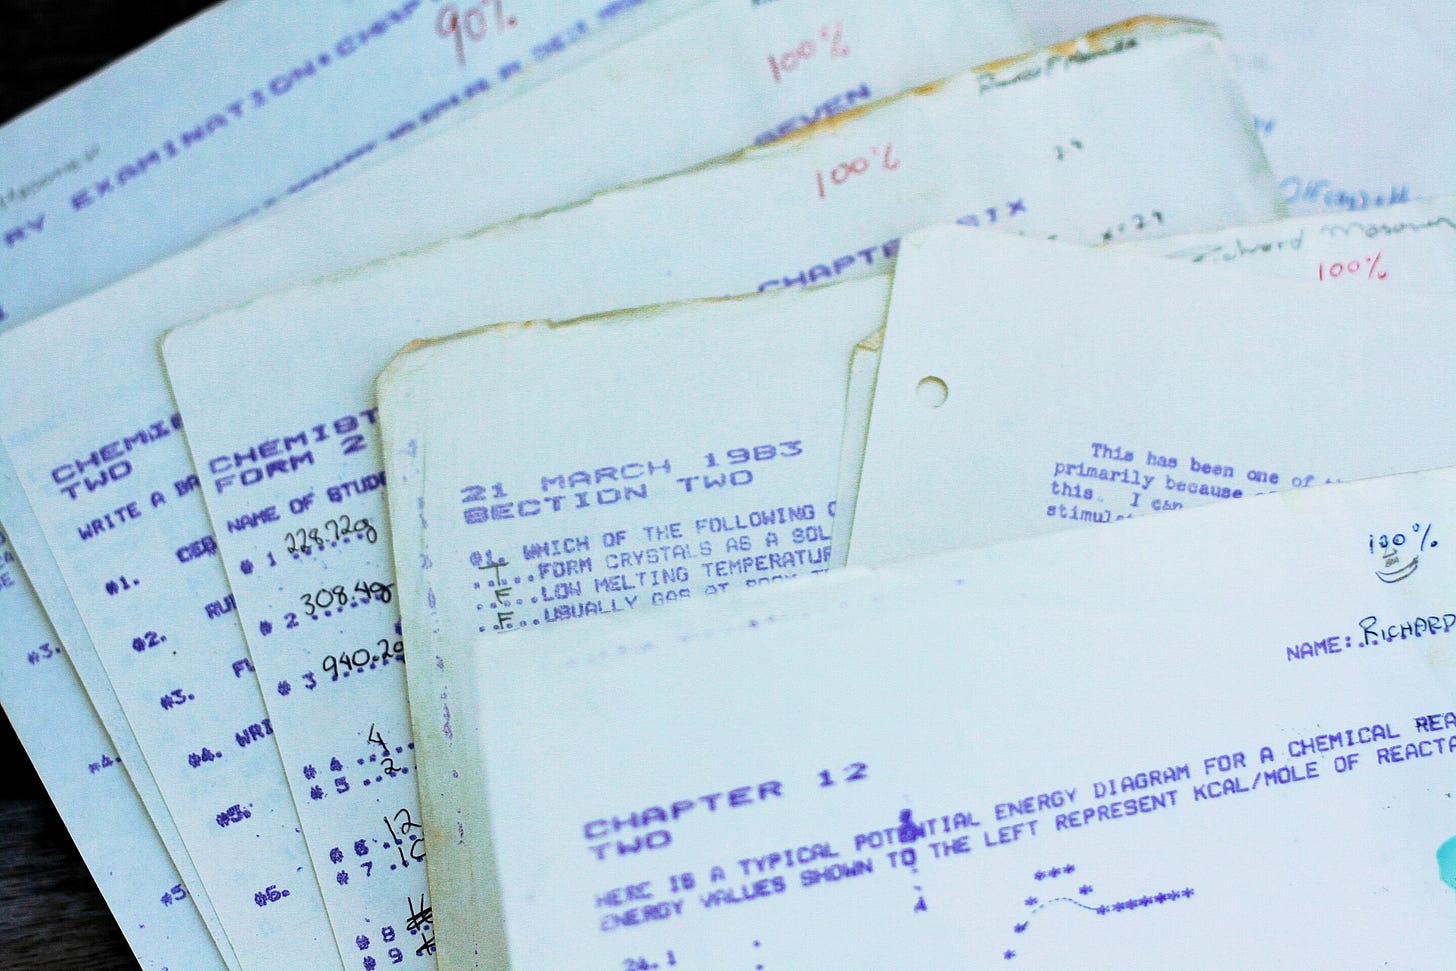 90%
RY EXAMINATION • CHAPT
100%
SEVEN
100%
CHAPTE
SIX
x=29
Richard
100%
CHEMIS
TWO
WRITE A BA
#1.
#2.
RU
#3.
FL
#4. WRI
#5.
#6.
#3.
#4.
#5
CHEMIST
FORM 2
NAME OF STUDE
# 1 228.72g
# 2 308.4g
# 3 940.2g
# 4 4
# 5 2
# 6 12
# 7 10
# 8
# 9
21 MARCH 1983
SECTION TWO
#1. WHICH OF THE FOLLOWING C
T FORM CRYSTALS AS A SOL
F LOW MELTING TEMPERATUR
F USUALLY GAS AT ROOM T
This has been one of
primarily because
this. I can
stimul
100%
NAME: RICHARD
CHAPTER 12
TWO
HERE IS A TYPICAL POTENTIAL ENERGY DIAGRAM FOR A CHEMICAL REA
ENERGY VALUES SHOWN TO THE LEFT REPRESENT KCAL/MOLE OF REACTA
24.1